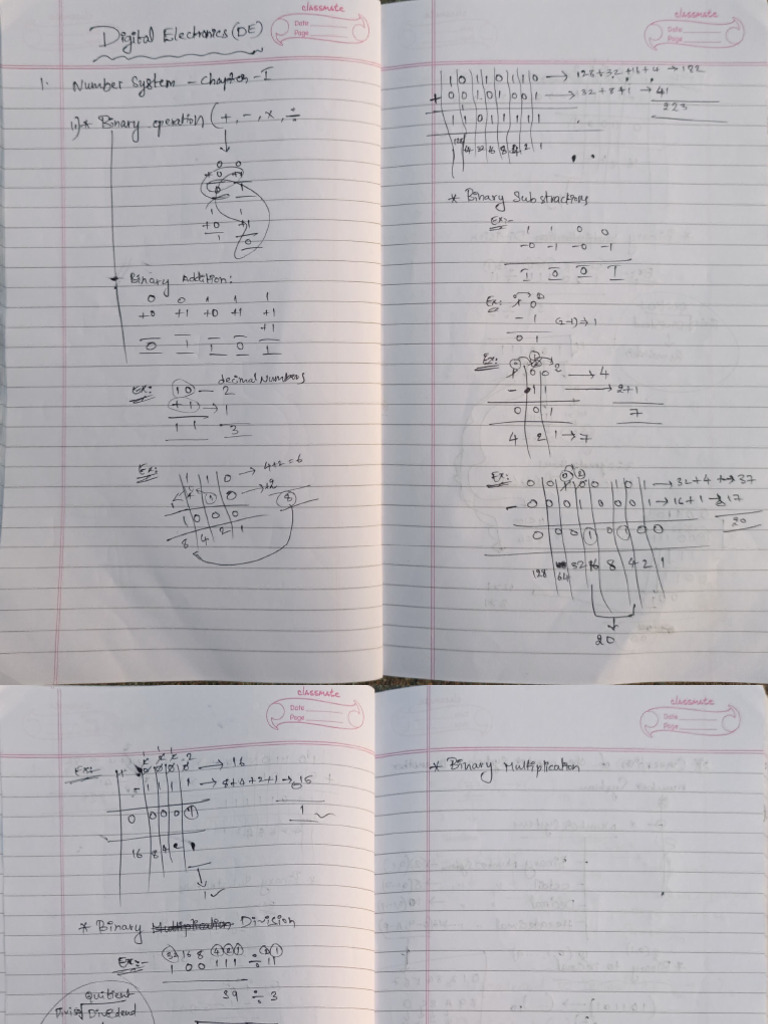 classmate
Date
Page
Digital Electronics (DE)
1. Number System - Chapter - I
1) * Binary operation (+, -, ×, ÷
0 0
+0 +1
0 1
1 1
+0 +1
1 0
* Binary Addition:
0 0 1 1 1
+0 +1 +0 +1 +1
+1
0 1 1 0 1
decimal Numbers
Ex: 10 — 2
+1 → 1
11 3
Ex: 1 1 0 → 4+2=6
1 0 →
8
1 0 0 0
8 4 2 1
classmate
Date
Page
1 0 1 1 0 1 1 0 → 128+32+16+4 → 182
+ 0 0 1 0 1 0 0 1 → 32+8+1 → 41
223
1 1 0 1 1 1 1 1
* Binary Substractions
Ex:-
1 1 0 0
-0 -1 -0 -1
1 0 0 1
Ex: 1 0
- 1 (2-1) → 1
0 1
Ex: 1 0 0 2 → 4
- 1 1 → 2+1
0 0 1 7
4 2 1 → 7
Ex: 0 0 1 0 0 1 0 1 → 32+4 → 37
- 0 0 0 1 0 0 0 1 → 16+1 → 17
0 0 0 1 0 1 0 0 20
128 64 32 16 8 4 2 1
20
classmate
Date
Page
Ex:
→ 16
1 1 1 1 → 8+4+2+1 → 15
0 0 0 0 1 1
16 8 4
1
* Binary Division
Ex:- 32 16 8 4 2 1 2 1
1 0 0 1 1 1 ÷ 1 1
39 ÷ 3
Quitient
Divisor Dividend
classmate
Date
Page
* Binary Multiplication